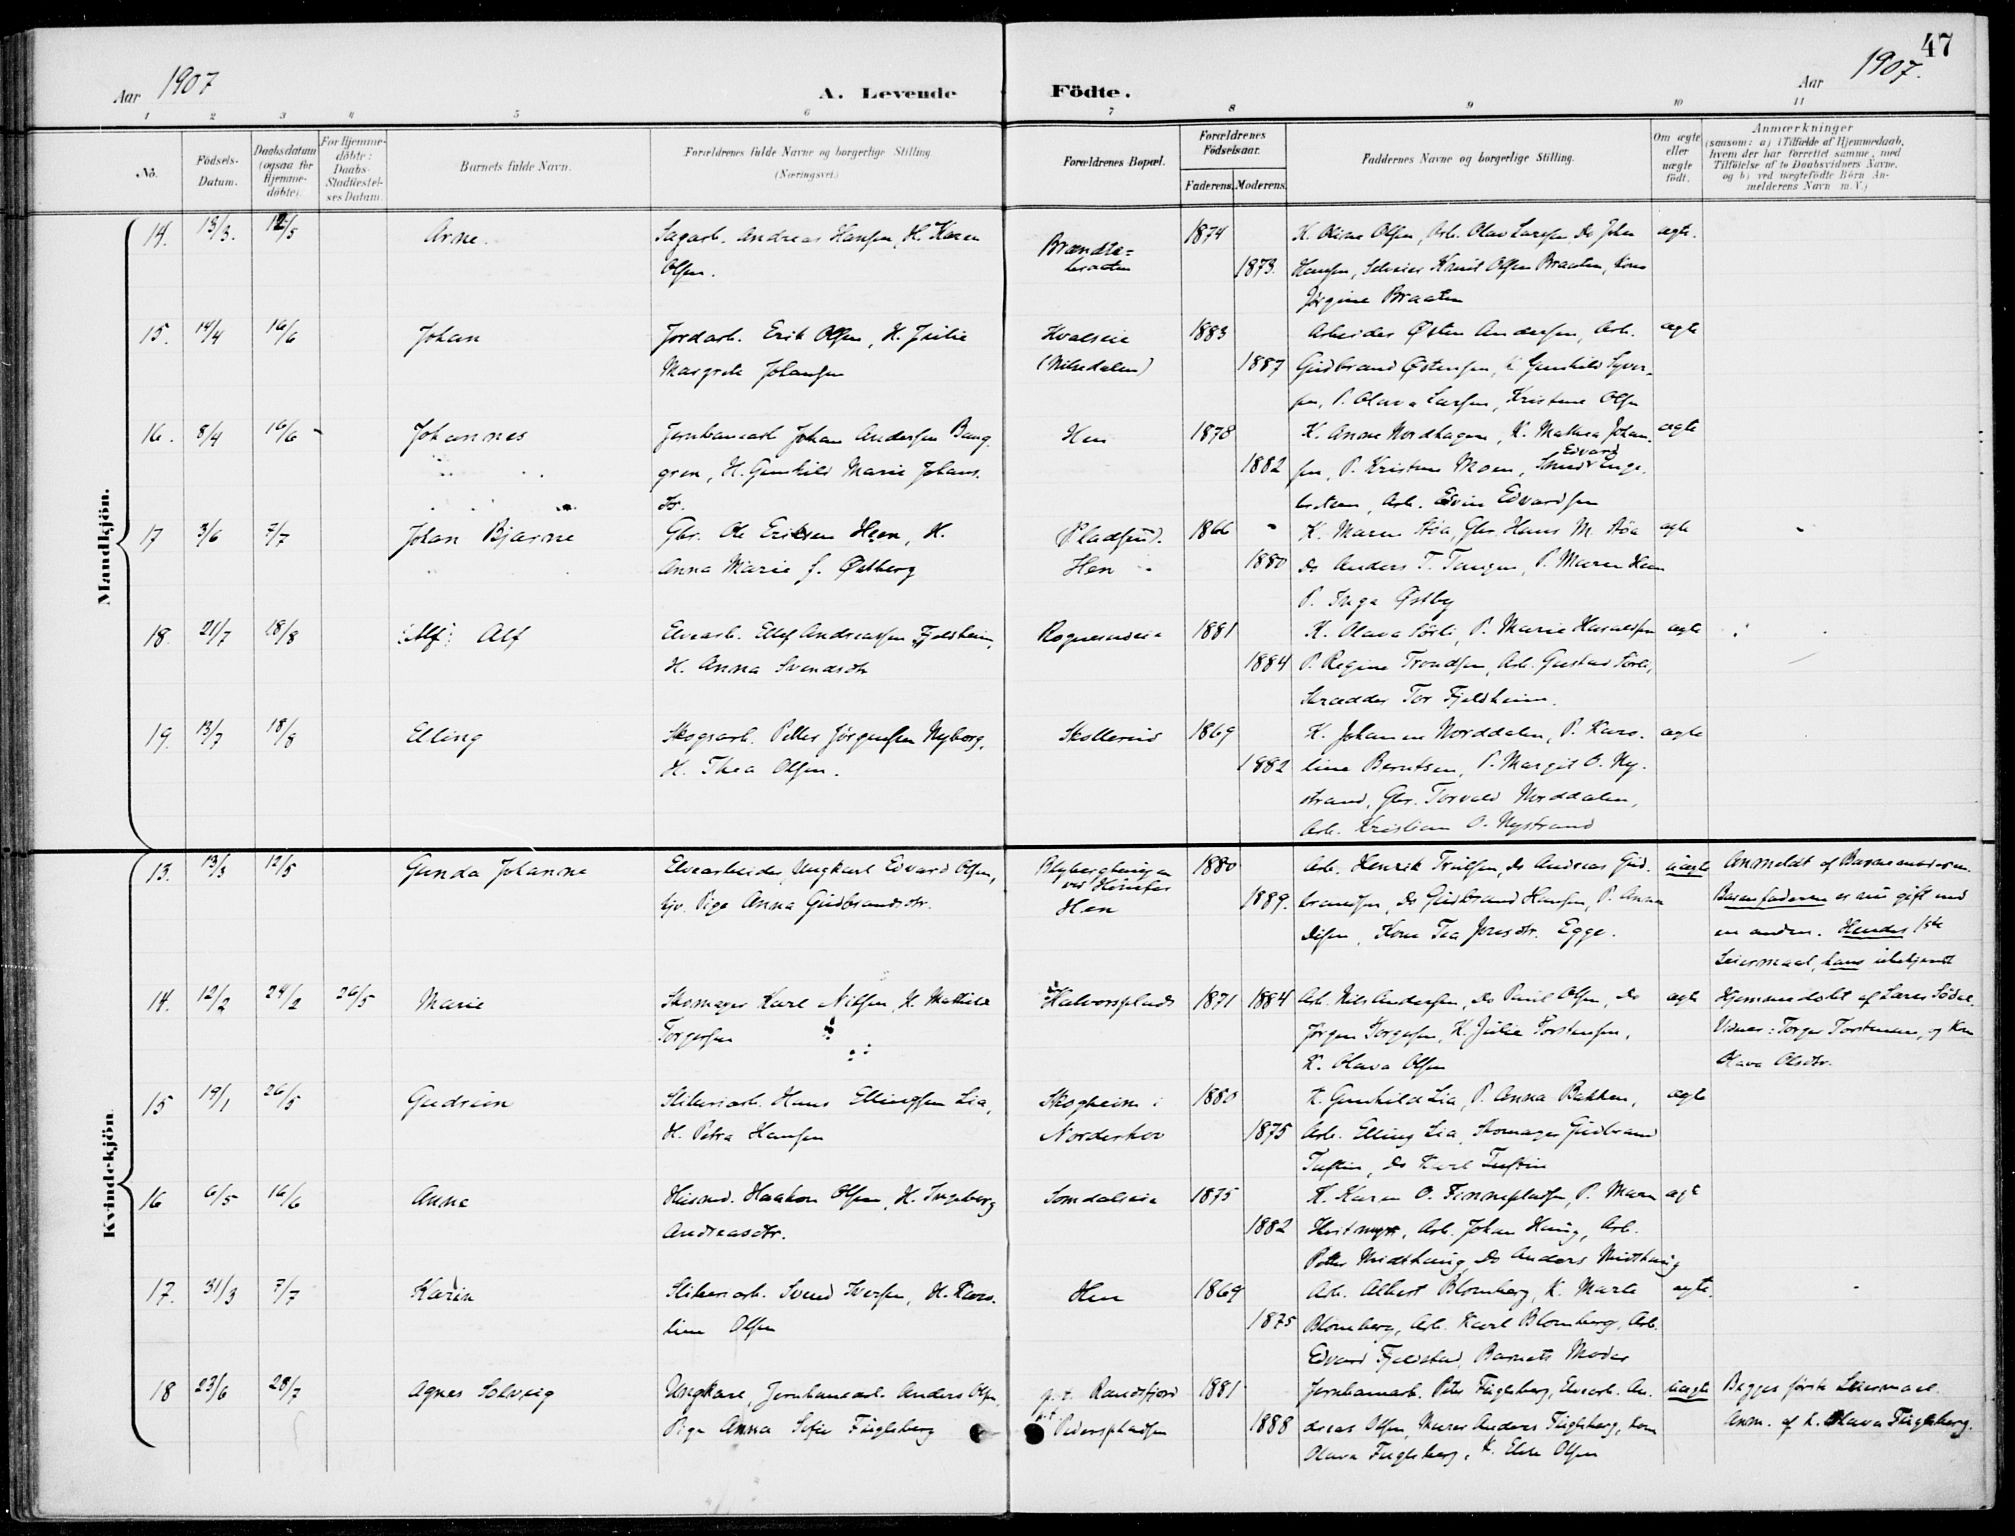 47
Aar 1907
A. Levende Födte.
Aar 1907.
1 2 3 4 5 6 7 8 9 10 11
No.
Födsels-Datum.
Daabsdatum (ogsaa for Hjemme-döbte).
For Hjemme-döbte: Daabs-Stadfæstel-ses Datum.
Barnets fulde Navn.
Forældrenes fulde Navne og borgerlige Stilling
(Næringsvei.)
Forældrenes Bopæl.
Forældrenes Födselsaar.
Faderens. Moderens.
Faddernes Navne og borgerlige Stilling.
Om ægte eller uægte födt.
Anmærkninger
(saasom: a) i Tilfælde af Hjemmedaab, hvem der har forrettet samme, med Tilföielse af to Daabsvidners Navne, og b) ved uægtefödte Börn An-melderens Navn m. V.)
Mandkjön.
14. 13/3. 12/5 Arne. Sagarb. Andreas Hansen, H. Karen Brændte= 1874 K. Oline Olsen, Arb. Olav Larsen, Do Johan ægte.
Olsen. braaten 1873. Hansen, Selveier Knut Olsen Braaten, Kone
Jørgine Braaten
15. 14/4 16/6 Johan Jordarb. Erik Olsen, H. Julie Hvalseie 1883 Arbeider Østen Andersen, Arb. ægte
Margrete Johansen (Nilsedalen) 1887 Gudbrand Østensen, K. Gunhild Syver-
sen, P. Olava Larsen, Kristine Olsen
16. 8/4 16/6 Johannes Jernbanearb Johan Andersen Bang Hen 1878 K. Anne Nordhagen, K. Mathea Johan- ægte
gren, H. Gunhild Marie Johans. 1882 sen, P. Kristine Moen, Smed Edvard Enge-
dtr. bretsen, Arb. Edvin Edvardsen
17 3/6 7/7 Johan Bjarne Gbr. Ole Eriksen Heen, H. (Pladsen). 1866 K. Maren Støa, Gbr. Hans M. Støa ægte
Anna Marie f. Østberg Hen 1880 Do Anders T. Tangen, P. Maren Heen
P. Inga Østby
18. 21/7 18/8 Alf Alf Elvearb. Ellef Andreassen Fjeldheim, 1881 K. Olava Sörli, P. Marie Haraldsen ægte
H. Anna Svendsdtr 1884 P. Regine Trondsen, Arb. Gustav Sörli,
Skrædder Tor Fjeldheim.
19. 13/7 18/8 Elling Skogsarb. Petter Jörgensen Nyborg, Skollerud 1869 K. Johanne Norddalen, P. Karo- ægte
H. Thea Olsen. 1882 line Berntsen, P. Margit O. Ny-
strand, Gbr. Torvald Norddalen,
Arb. Kristian O. Nystrand
Kvindekjön.
13. 13/3 12/5 Gunda Johanne Elvearbeider, Ungkarl Edvard Olsen, 1880 Arb. Henrik Truelsen, Do Andreas Gud- uægte Anmeldt af Barnemoderen.
og Pige Anna Gudbrandsdtr. ved Hönefos Hen 1889. brandsen, Do Gudbrand Hansen, P. Anna Barnefaderen er nu gift med
Kone Tea Jensdtr. Egge. en anden. Hendes 1ste
Leiermaal, hans ubekjendt
14. 12/2 24/2 26/5 Marie Skomager Karl Nilsen, H. Mathilde Halvorsplads 1871 1884 Arb. Nils Andersen, Do Paul Olsen, Do ægte Hjemmedöbt af Lærer Södal.
Torgersen Jørgen Torgersen, K. Julie Torstensen, Vidner: Torger Torstensen, og Kone
K. Olava Olsen Olava Olsdtr.
15 19/1 26/5 Gudrun Sliberiarb. Hans Ellingsen Lia, Skogheim i 1880 K. Gunhild Lia, P. Anna Bakken, ægte
H. Petra Hansen Norderhov 1875 Arb. Elling Lia, Skomager Gudbrand
Tuftin, Do Karl Tuftin
16 6/5 16/6 Anne Husmd. Haakon Olsen, H. Ingeborg Somdalseie 1875 K. Karen O. P. Maren ægte
Andreasdtr. 1882 Arb. Johan Haug, Arb.
Petter Midthaug, Do Anders Midthaug
17. 31/3 7/7 Karin Sliberiarb. Svend Iversen, H. Karo- Hen 1869 Arb. Albert Blomberg, K. Marte ægte.
line Olsen 1875 Blomberg, Arb. Karl Blomberg, Arb.
Edvard Fjeldstad, Barnets Moder
18 23/6 28/7 Agnes Solveig Ungkarl, Jernbanearb. Anders Olsen, p.t. Randsfjord 1881 Jernbanearb. Peter Fuglesberg, Elvearb. An- uægte Begges förste Leiermaal.
Pige Anna Sofie Fuglesberg p.t. Pedersplassen 1888 dreas Olsen, Anders Fuglesberg, Kone Anm. af K. Olava Fuglesberg.
Olava Fuglesberg, K. Else Olsen